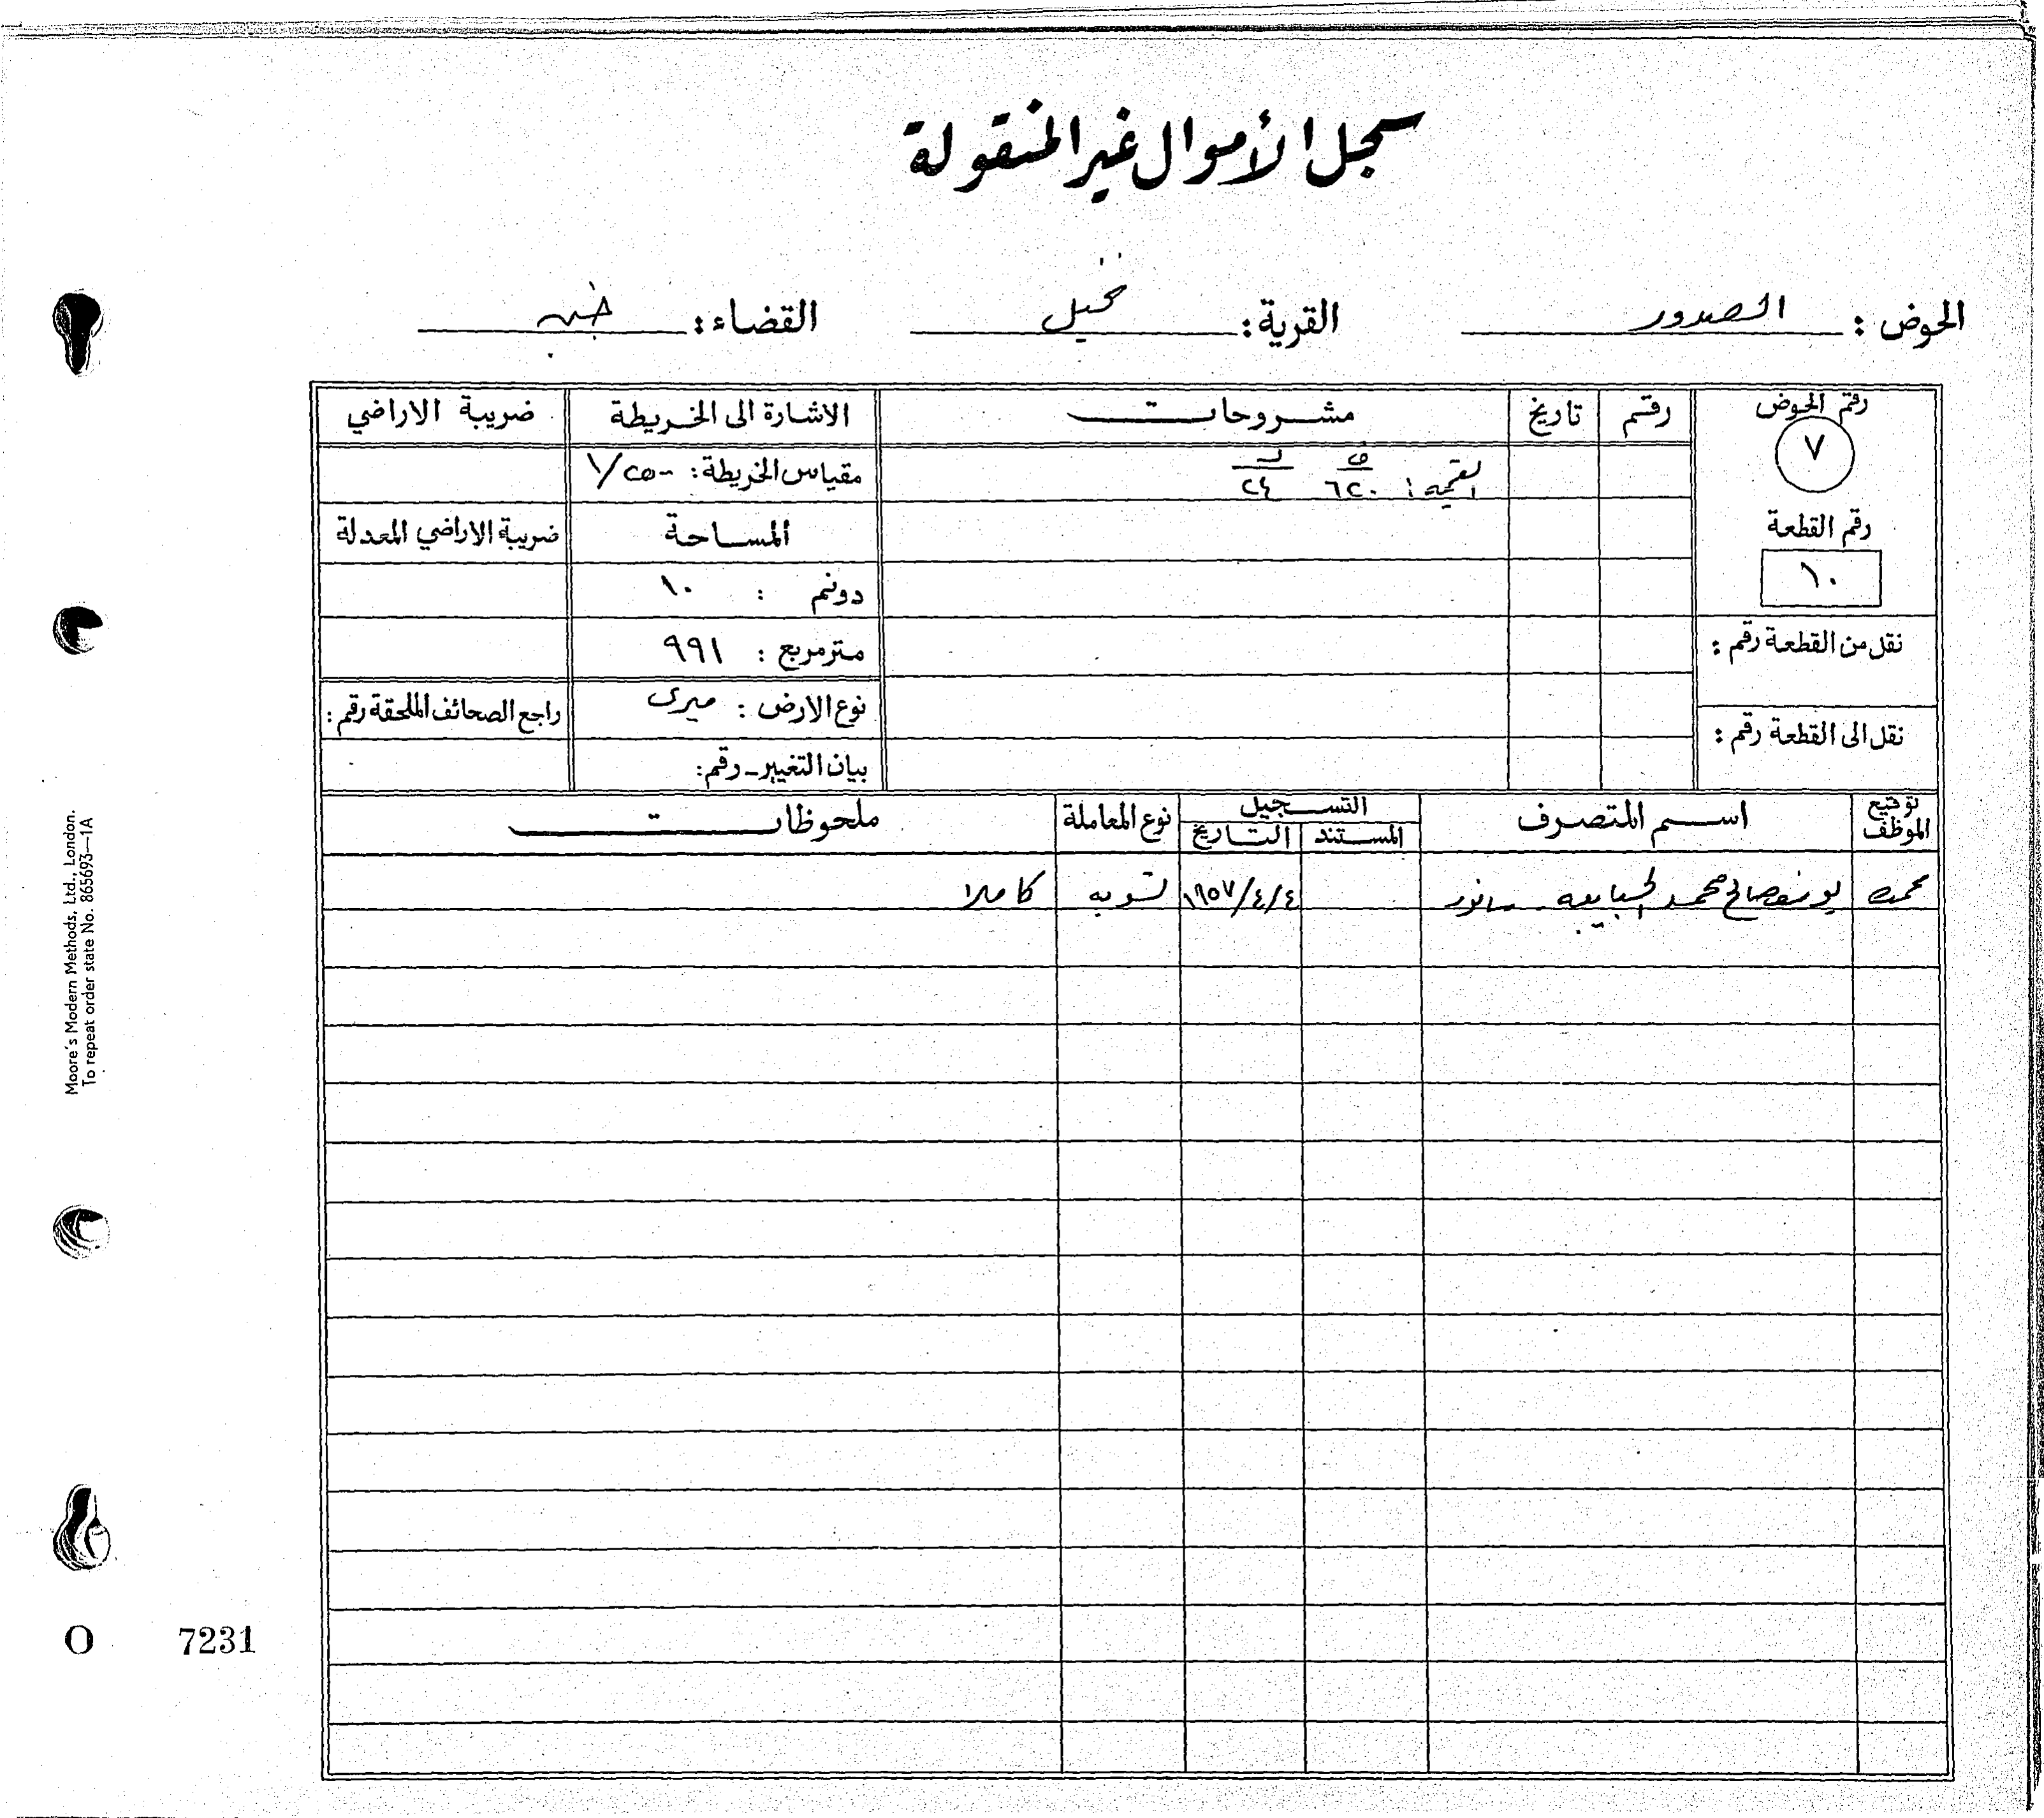 سجل الأموال غير المنقولة
الحوض : الصدور القرية : نخيل القضاء : جنين
رقم الحوض رقم تاريخ مشروحات الاشارة الى الخريطة ضريبة الاراضي
٧ القيمة : ف ٦٢٠ د ٢٤ مقياس الخريطة : ١/٢٥٠٠
رقم القطعة المساحة ضريبة الاراضي المعدلة
١٠ دونم : ١٠
نقل من القطعة رقم : متر مربع : ٩٩١
نوع الارض : ميري راجع الصحائف الملحقة رقم :
نقل الى القطعة رقم : بيان التغيير - رقم :
توقيع الموظف اسم المتصرف التسجيل نوع المعاملة ملحوظات
المستند التاريخ
يوسف صالح محمد - سانور ١٩٥٧/٤/٤ تسوية كاملا
Moore's Modern Methods, Ltd., London.
To repeat order state No. 865693—1A
O 7231